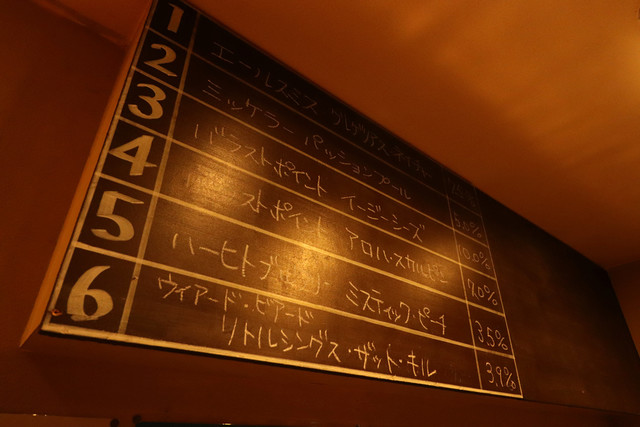 1 エールスミス
2 ミッケラー パッションプール 5.0%
3 バラストポイント イージーシーズ
4 ストポイント アロハ・スカルピン 7.0%
5 ミスティック・ピーチ 3.5%
6 ウィアード・ビアード
リトルシングス・ザット・キル 3.9%